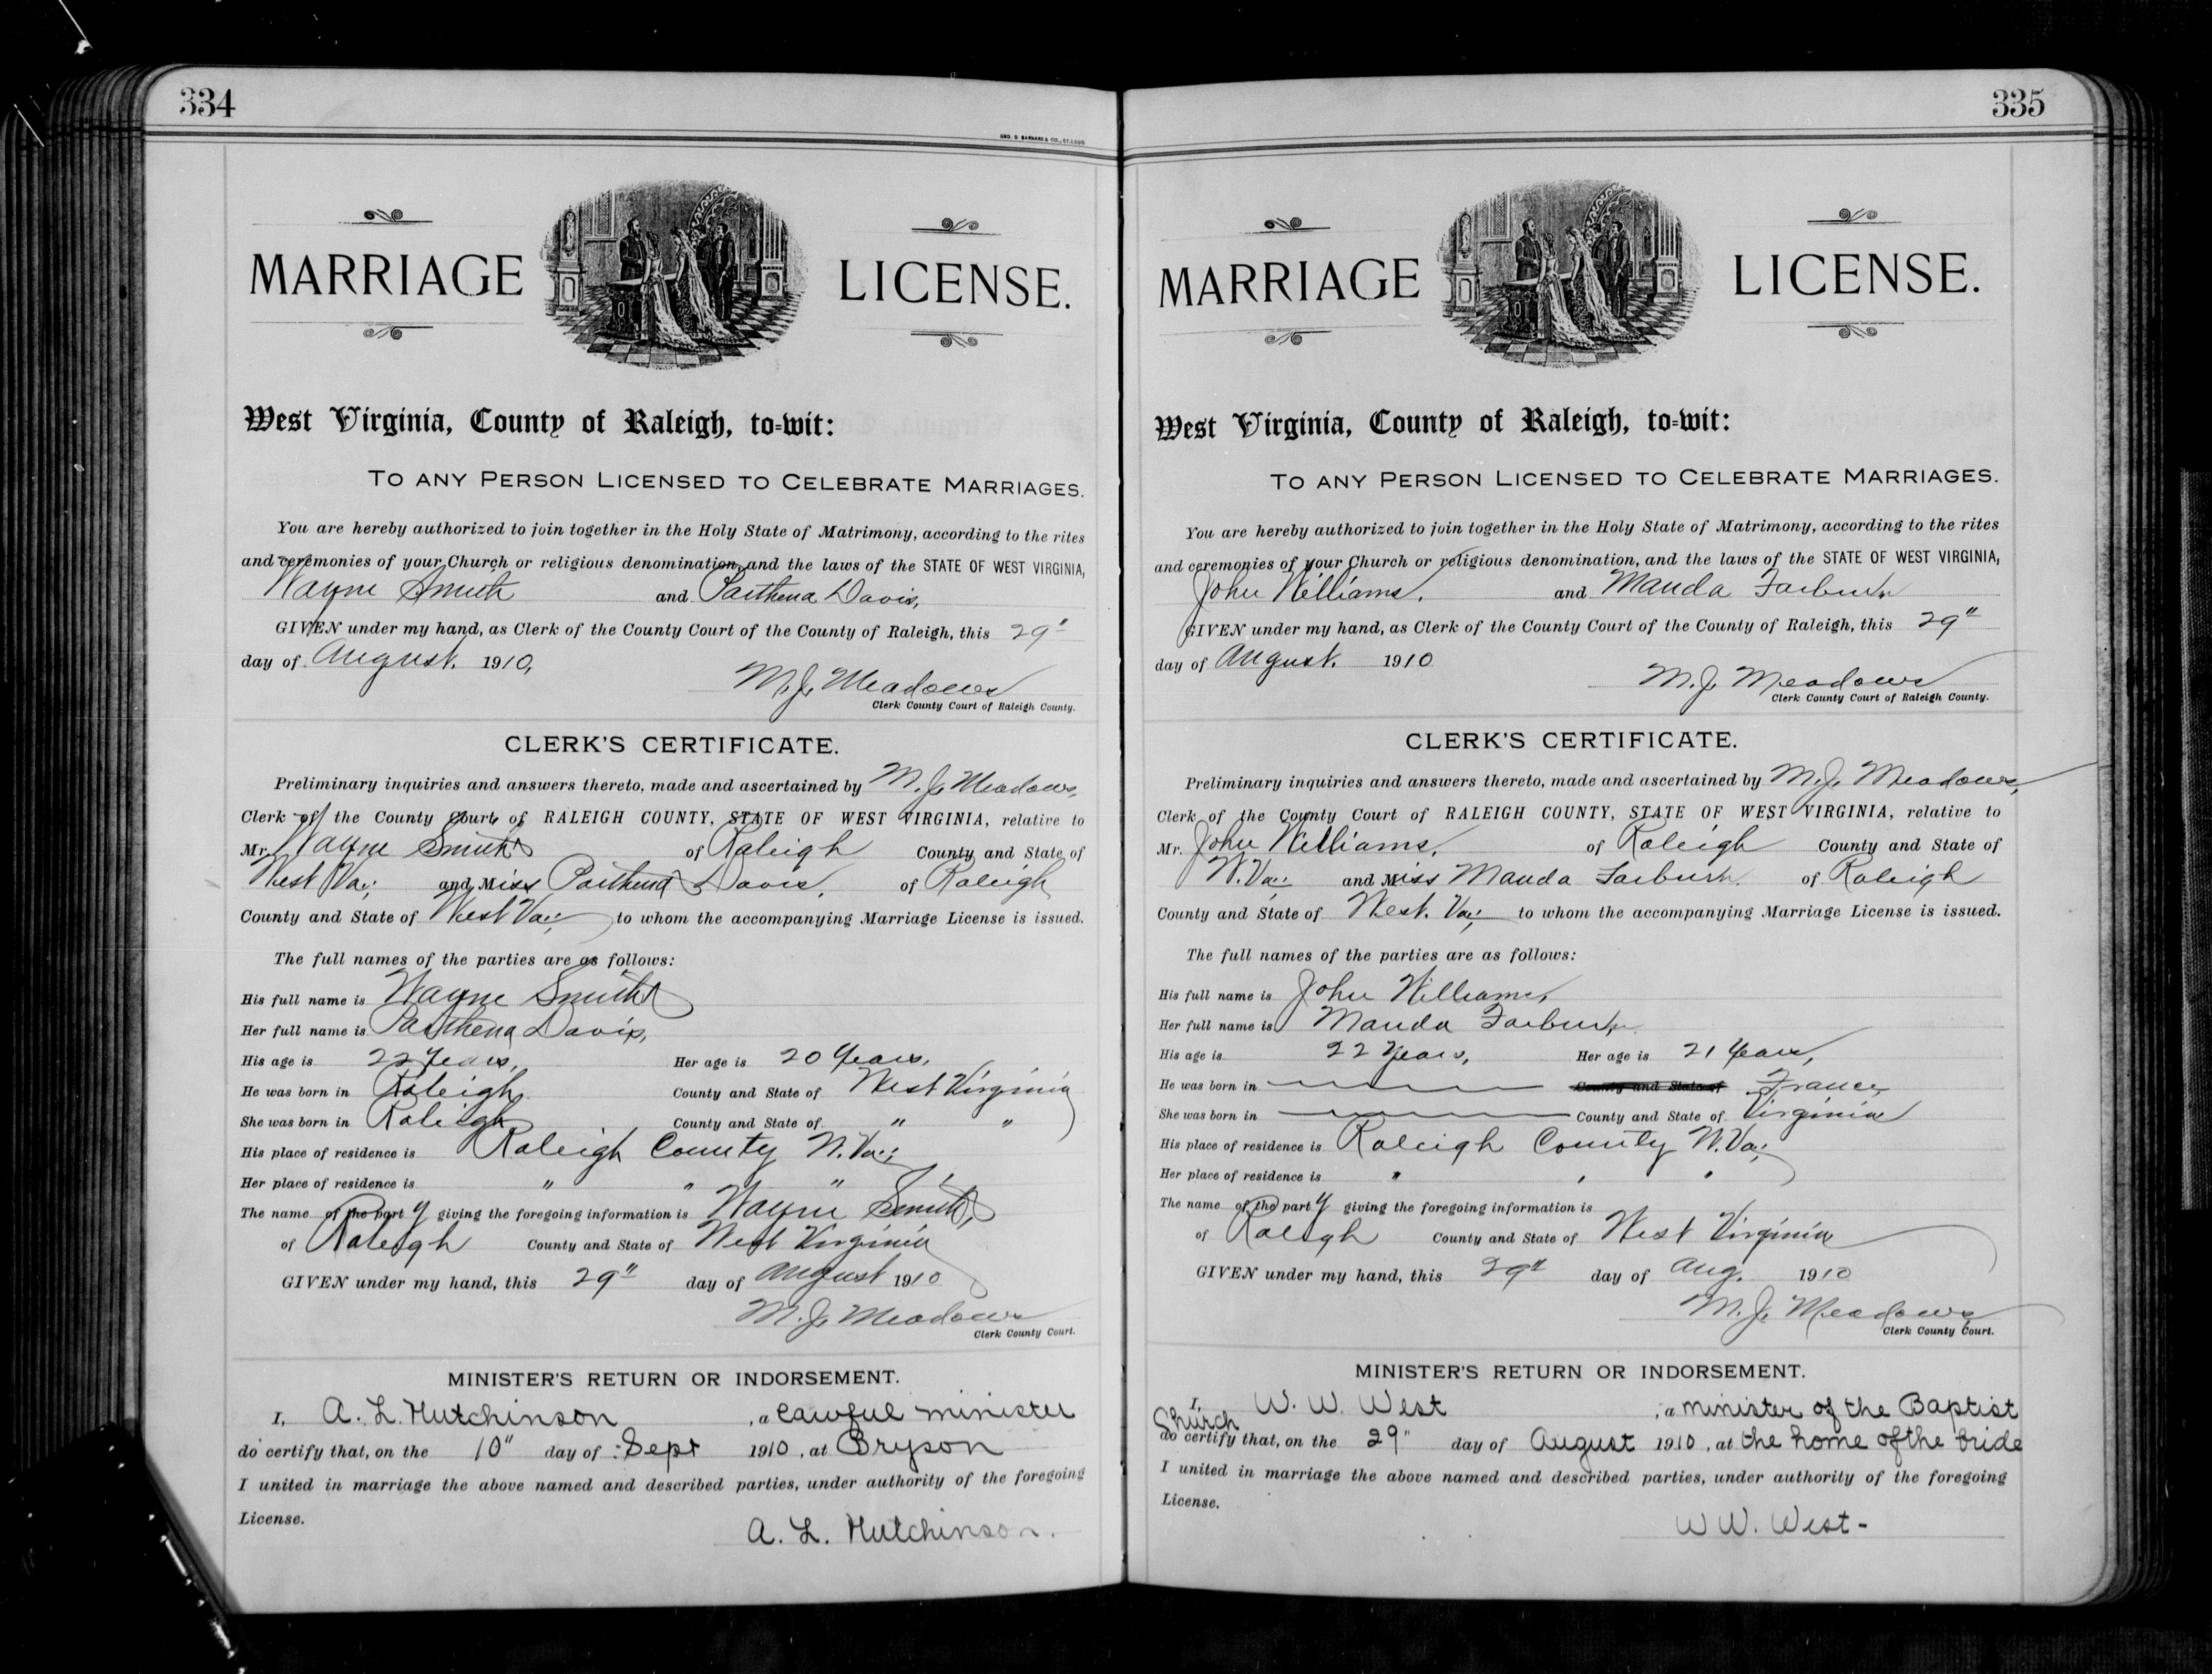 334
GEO. D. BARNARD & CO., ST. LOUIS
MARRIAGE LICENSE.
West Virginia, County of Raleigh, to-wit:
TO ANY PERSON LICENSED TO CELEBRATE MARRIAGES.
You are hereby authorized to join together in the Holy State of Matrimony, according to the rites
and ceremonies of your Church or religious denomination, and the laws of the STATE OF WEST VIRGINIA,
Wayne Smith and Parthena Davis,
GIVEN under my hand, as Clerk of the County Court of the County of Raleigh, this 29"
day of August. 1910,
M. J. Meadows
Clerk County Court of Raleigh County.
CLERK'S CERTIFICATE.
Preliminary inquiries and answers thereto, made and ascertained by M. J. Meadows,
Clerk of the County Court of RALEIGH COUNTY, STATE OF WEST VIRGINIA, relative to
Mr. Wayne Smith of Raleigh County and State of
West Va; and Miss Parthena Davis, of Raleigh
County and State of West Va; to whom the accompanying Marriage License is issued.
The full names of the parties are as follows:
His full name is Wayne Smith
Her full name is Parthena Davis,
His age is 22 Years, Her age is 20 Years,
He was born in Raleigh County and State of West Virginia
She was born in Raleigh County and State of " "
His place of residence is Raleigh County W. Va;
Her place of residence is " " "
The name of the party giving the foregoing information is Wayne Smith,
of Raleigh County and State of West Virginia
GIVEN under my hand, this 29" day of August 1910
M. J. Meadows
Clerk County Court.
MINISTER'S RETURN OR INDORSEMENT.
I, A. L. Hutchinson, a lawful minister
do certify that, on the 10" day of Sept 1910, at Bryson
I united in marriage the above named and described parties, under authority of the foregoing
License.
A. L. Hutchinson.
335
MARRIAGE LICENSE.
West Virginia, County of Raleigh, to-wit:
TO ANY PERSON LICENSED TO CELEBRATE MARRIAGES.
You are hereby authorized to join together in the Holy State of Matrimony, according to the rites
and ceremonies of your Church or religious denomination, and the laws of the STATE OF WEST VIRGINIA,
John Williams, and Manda
GIVEN under my hand, as Clerk of the County Court of the County of Raleigh, this 29"
day of August. 1910
M. J. Meadows
Clerk County Court of Raleigh County.
CLERK'S CERTIFICATE.
Preliminary inquiries and answers thereto, made and ascertained by M. J. Meadows,
Clerk of the County Court of RALEIGH COUNTY, STATE OF WEST VIRGINIA, relative to
Mr. John Williams, of Raleigh County and State of
W. Va; and Miss Manda of Raleigh
County and State of West. Va; to whom the accompanying Marriage License is issued.
The full names of the parties are as follows:
His full name is John Williams,
Her full name is Manda
His age is 22 Years, Her age is 21 Years,
He was born in County and State of France,
She was born in County and State of Virginia
His place of residence is Raleigh County W. Va;
Her place of residence is " " "
The name of the party giving the foregoing information is
of Raleigh County and State of West Virginia
GIVEN under my hand, this 29" day of Aug. 1910
M. J. Meadows,
Clerk County Court.
MINISTER'S RETURN OR INDORSEMENT.
I, W. W. West, a minister of the Baptist
Church
do certify that, on the 29" day of August 1910, at the home of the bride
I united in marriage the above named and described parties, under authority of the foregoing
License.
W W. West-